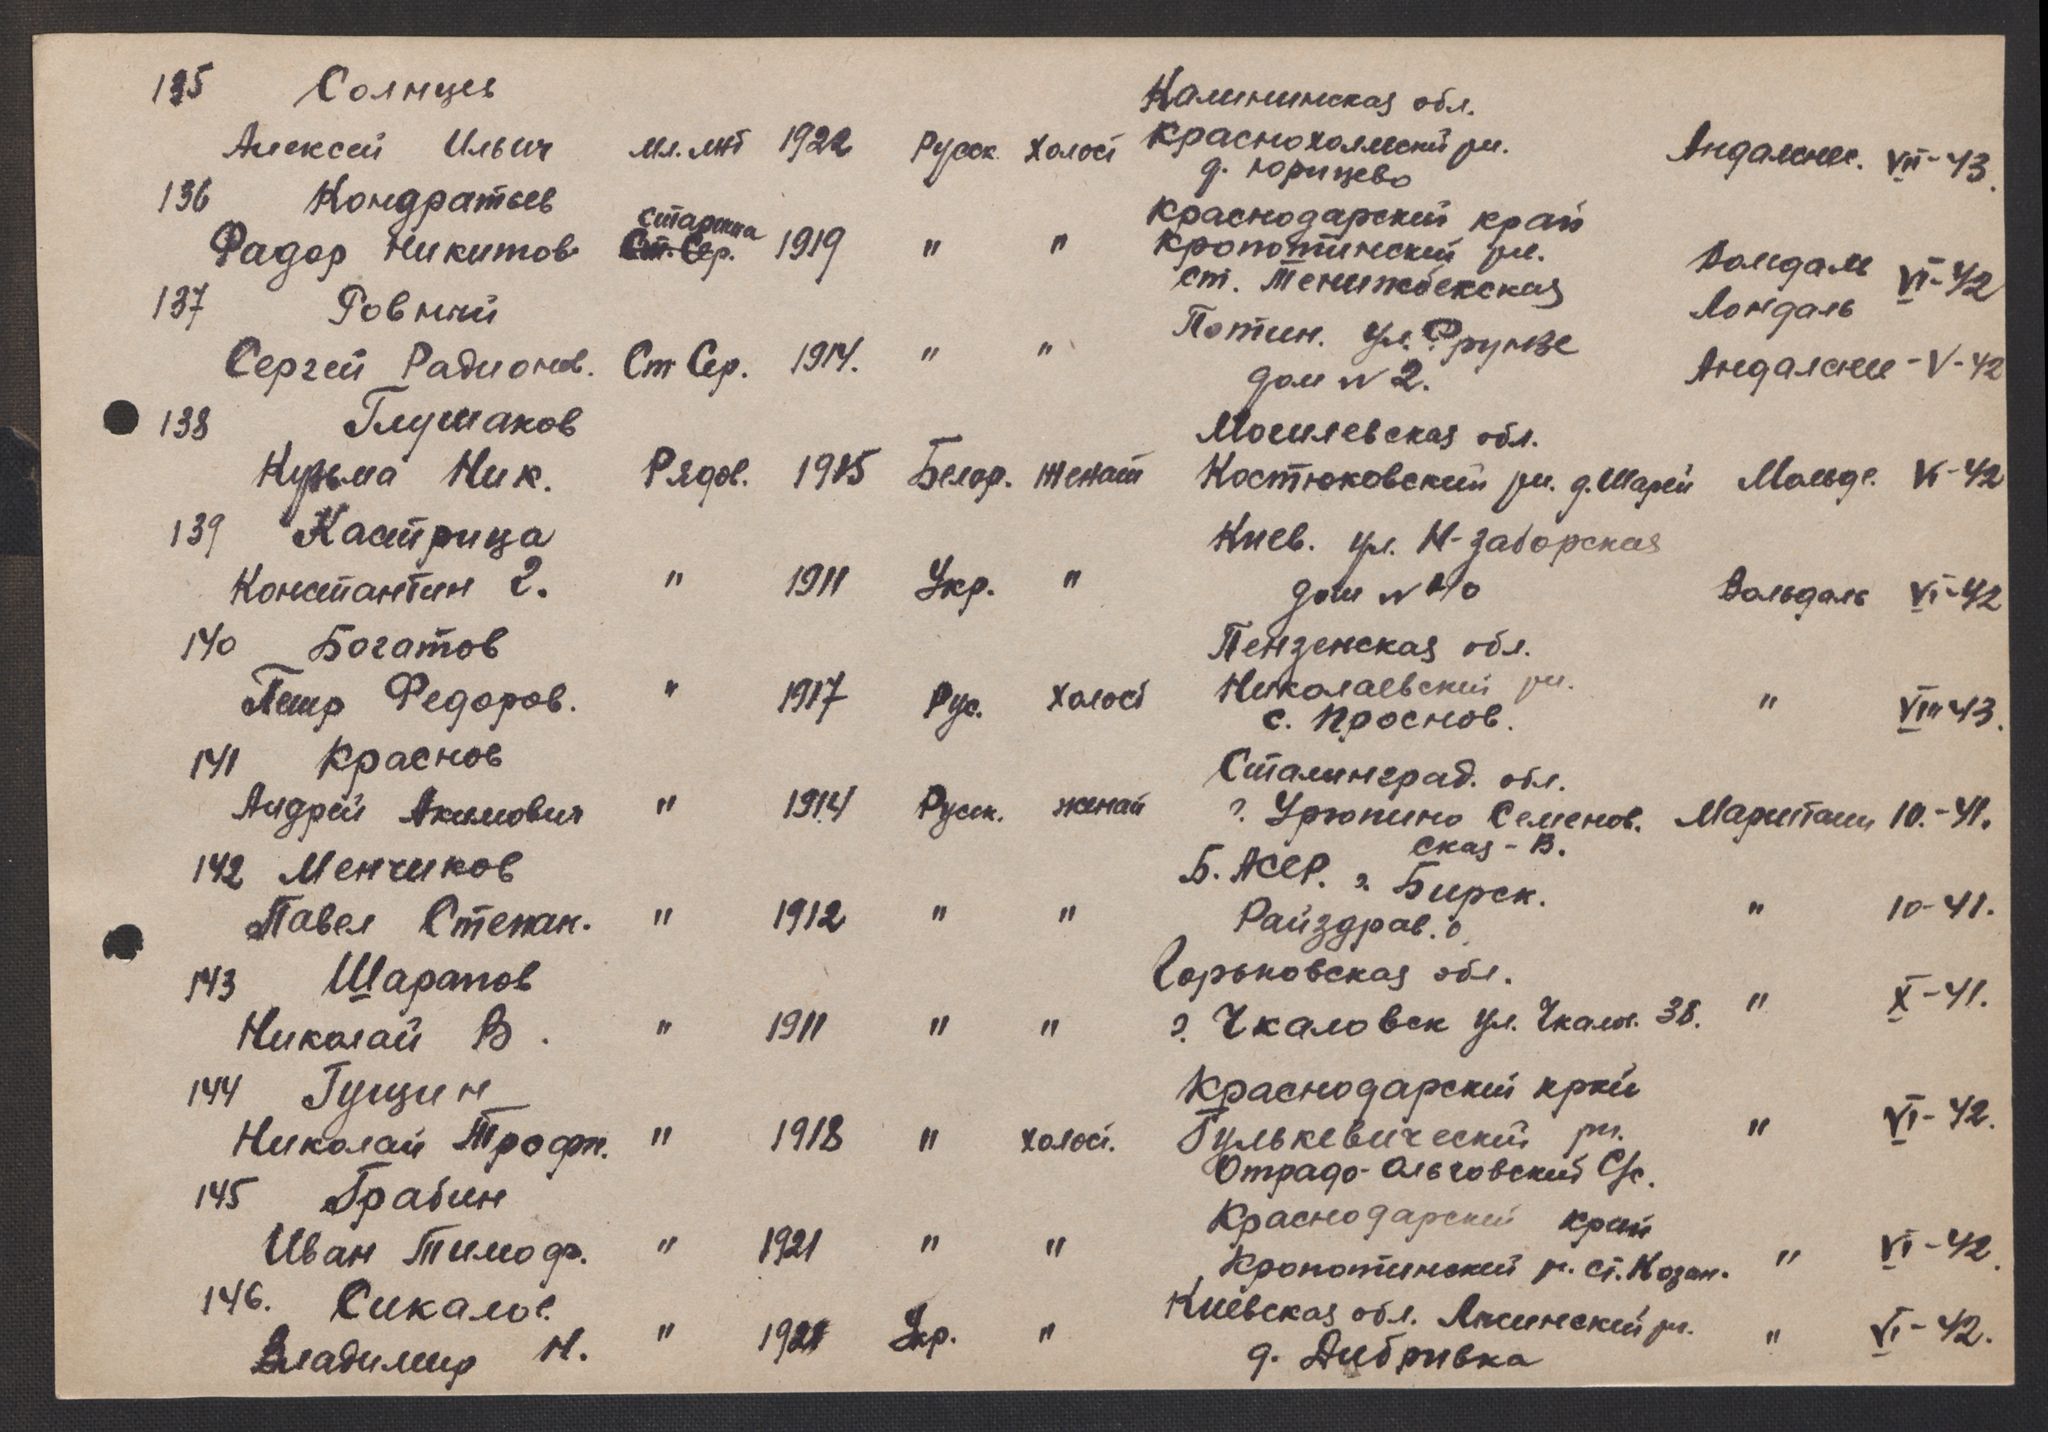 135 Солнцев
Алексей Ильич мл. лнт 1922 Русск. холост Калининская обл.
Краснохолмский рн.
д. Юрицево Андалснес. VII-43.
136 Кондратьев
Фадор Никитов. старшина Ст. Сер. 1919 " " Краснодарский край
Кропоткинский рн.
ст. Темижбекская Волдаль VI-42
Лондаль
137 Ровный
Сергей Радионов. Ст Сер. 1914. " " Потин. ул. Фрунзе
дом № 2. Андалснес - V-42
138 Глушаков
Кузьма Ник. Рядов. 1915 Белор. женат Могилевская обл.
Костюковский рн. д. Шарей Мольде. VI-42
139 Кастрица
Константин Г. " 1911 Укр. " Киев. ул. Н-заборская
дом № 40 Вольдаль VI-42
140 Богатов
Петр Федоров. " 1917 Рус. холост Пензенская обл.
Николаевский рн.
с. Проснов. " VIII 43.
141 Краснов
Андрей Акимович " 1914 Русск. женат Сталинград. обл.
г. Урюпино Семенов.
ская - В. Маристаин 10.-41.
142 Менчиков
Павел Степан. " 1912 " " Б. АССР. г. Бирск.
Райздрав. о. " 10-41.
143 Шарапов
Николай В. " 1911 " " Горьковская обл.
г. Чкаловск ул. Чкалов. 38. " X-41.
144 Гущин
Николай Трофи. " 1918 " холост. Краснодарский край
Гулькевический рн.
Отрадо-Ольговский С/с. " VI-42.
145 Грабин
Иван Тимоф. " 1921 " " Краснодарский край
Кропоткинский р. ст. Козан. " VI-42.
146. Сикалов.
Владимир Н. " 1921 Укр. " Киевская обл. Лисинский рн.
д. Дибривка " VI-42.